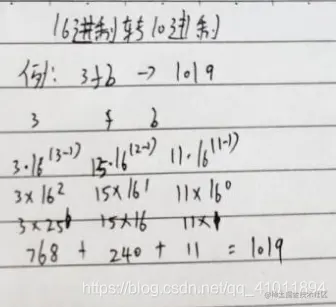 16进制转10进制
例: 3fb → 1019
3 f b
3·16^(3-1) 15·16^(2-1) 11·16^(1-1)
3×16² 15×16¹ 11×16⁰
3×256 15×16 11×1
768 + 240 + 11 = 1019
https://blog.csdn.net/qq_41011894
@稀土掘金技术社区